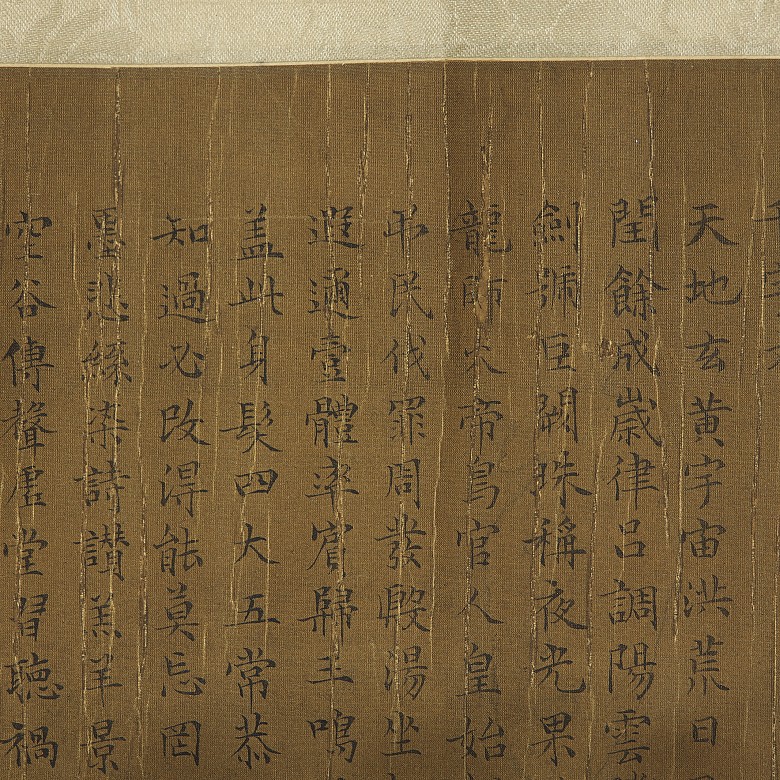 天地玄黄宇宙洪荒日
閏餘成歲律吕調陽雲
劍號巨闕珠稱夜光果
龍師火帝鳥官人皇始
弔民伐罪周發殷湯坐
遐邇壹體率賓歸王鳴
盖此身髮四大五常恭
知過必改得能莫忘罔
墨悲絲染詩讃羔羊景
空谷傳聲虛堂習聽禍